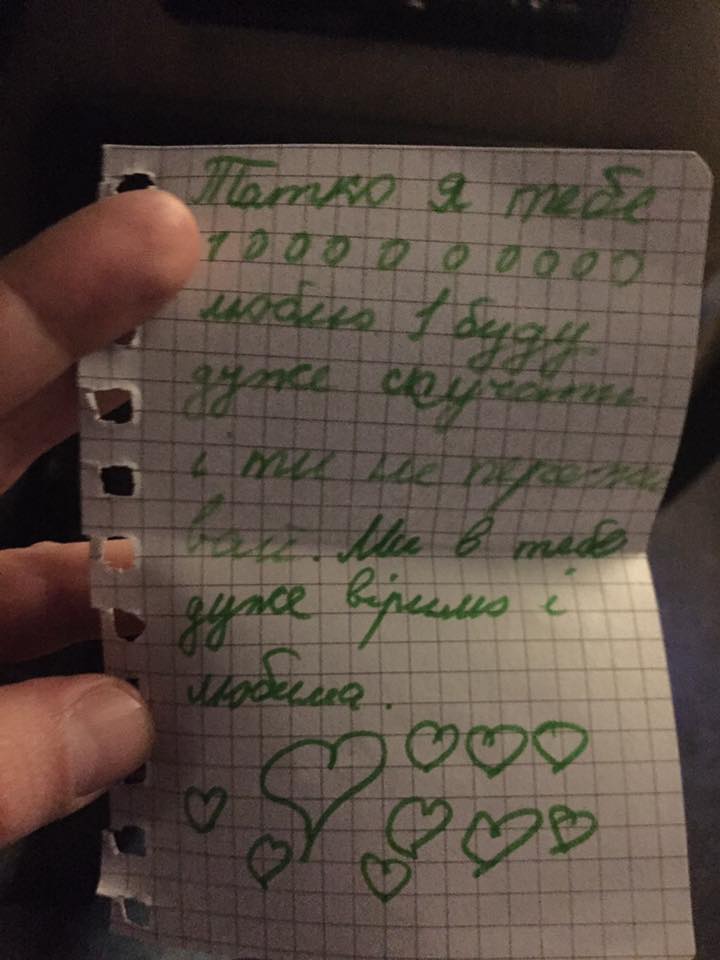 Татко я тебе
10000 00000
люблю 1 буду
дуже скучати
і ти не пережи
вай. Ми в тебе
дуже віримо і
любима.